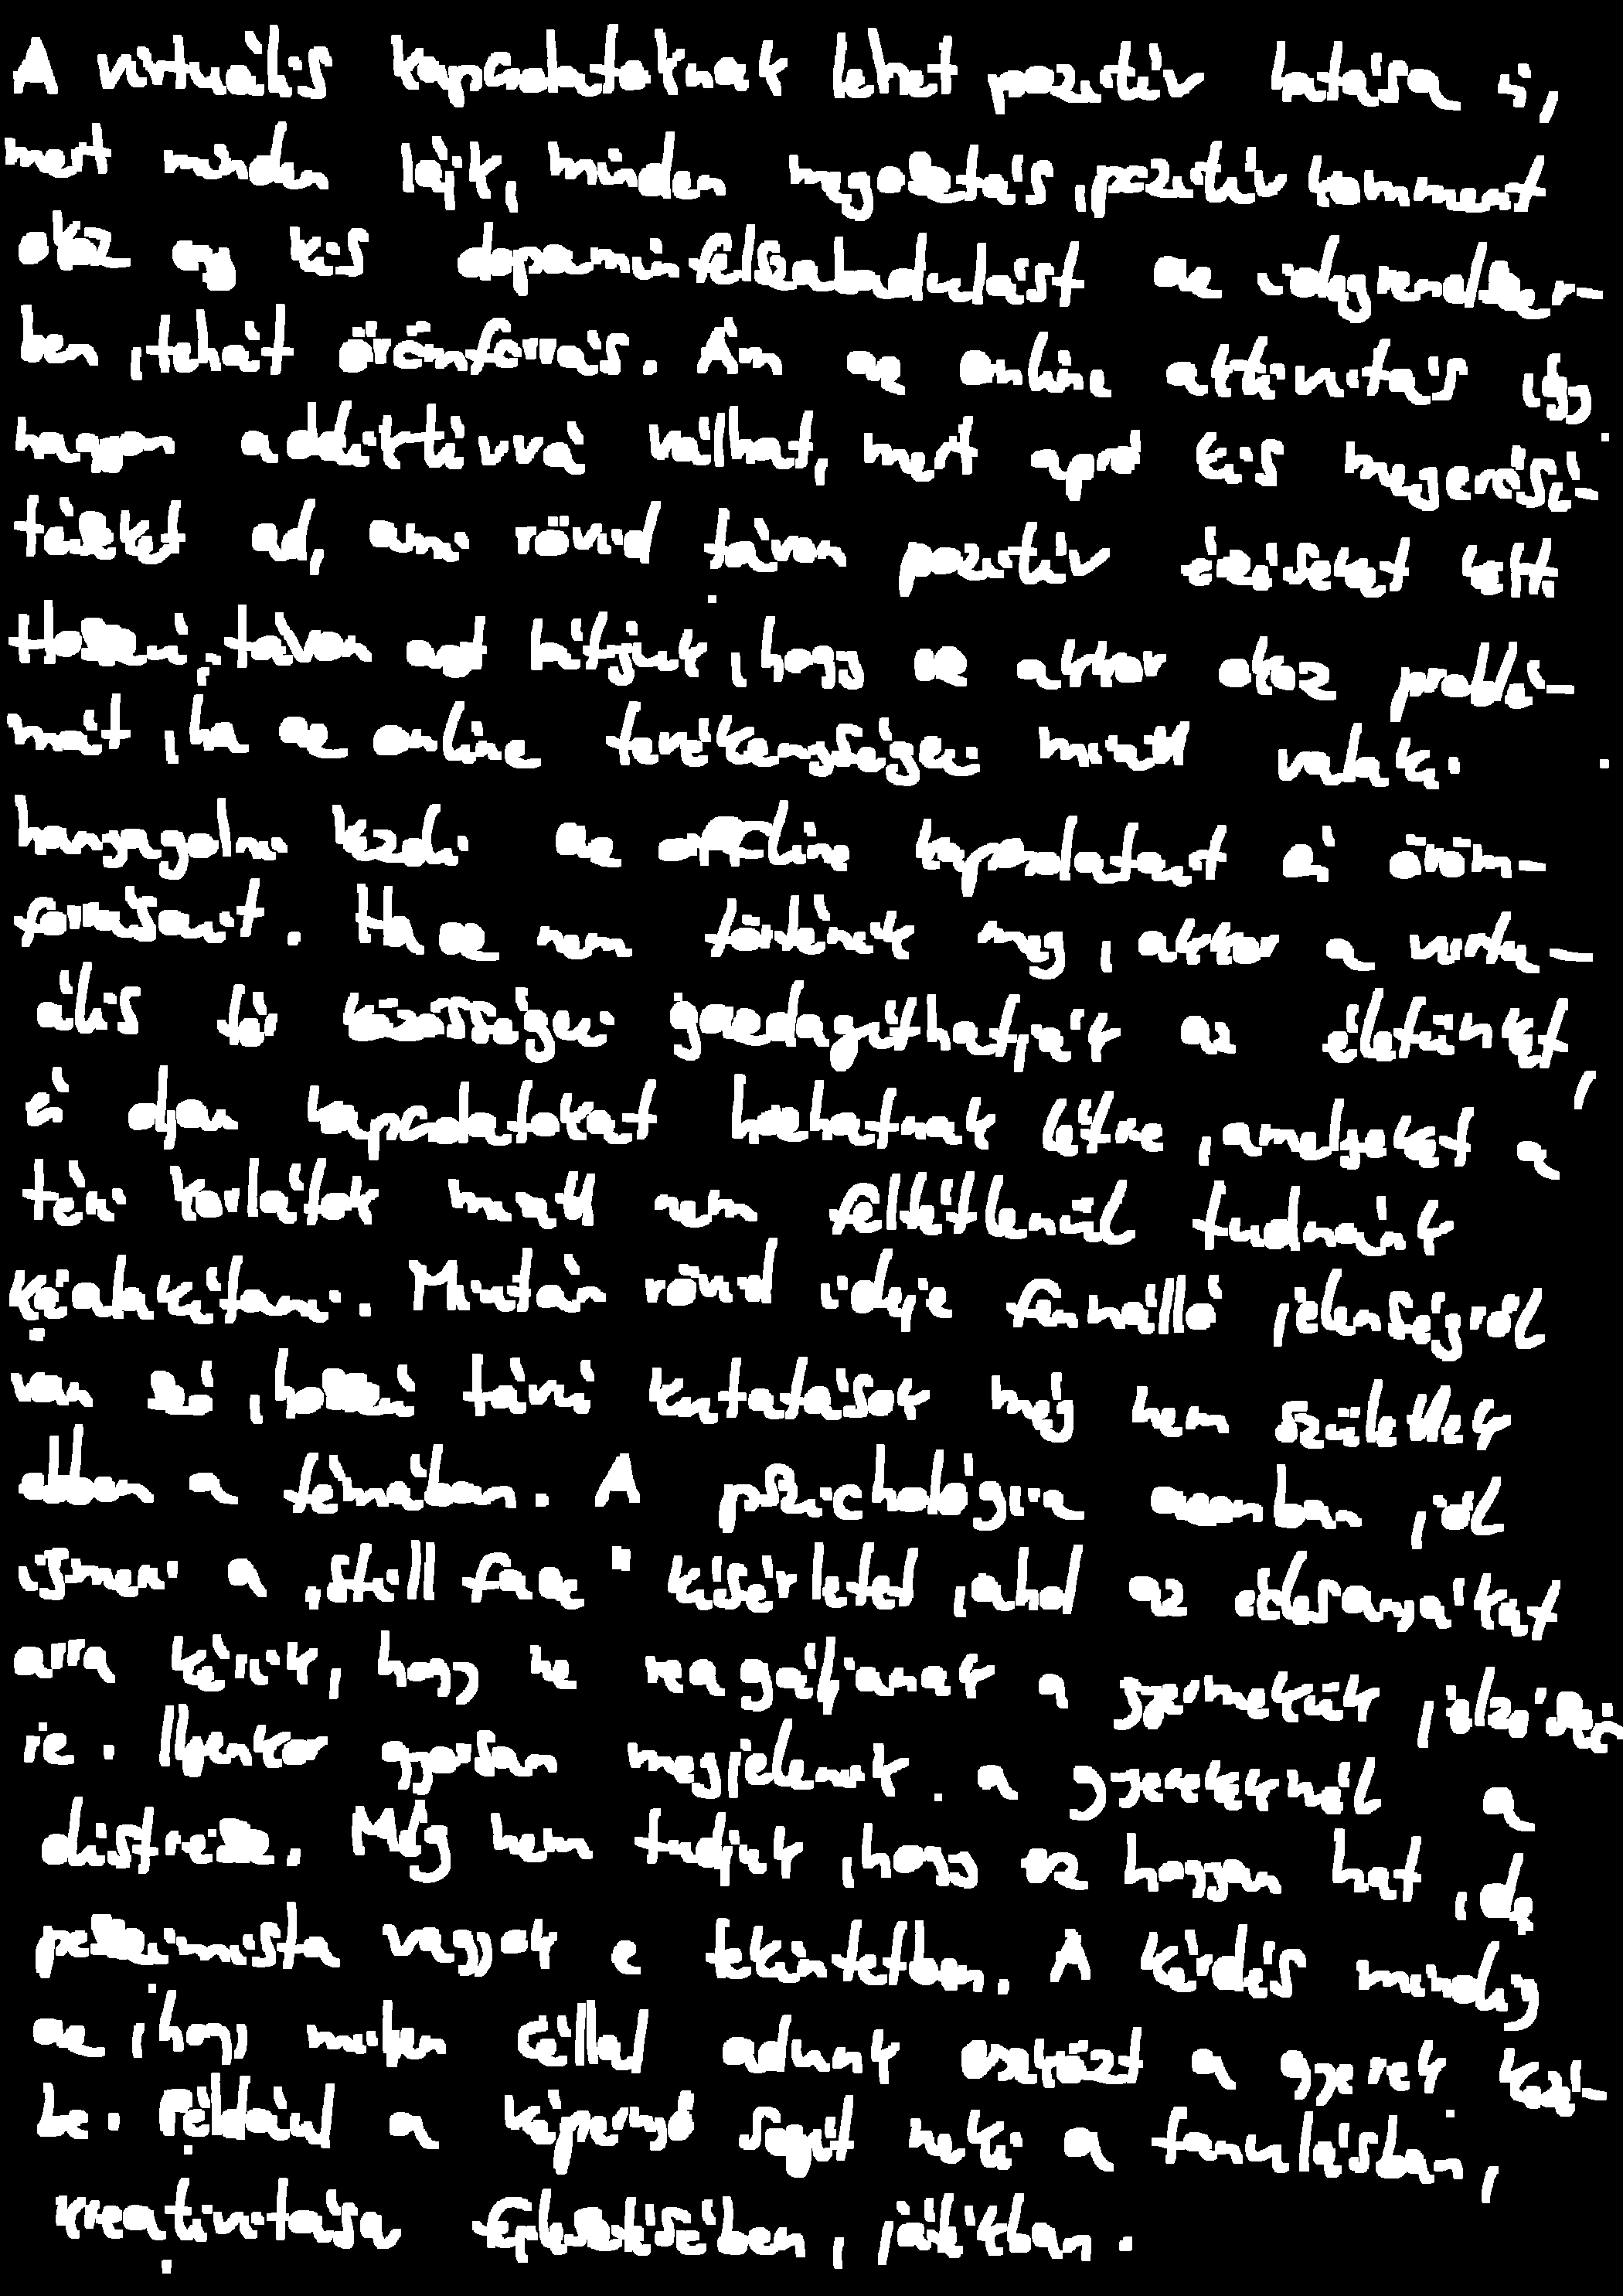 A virtuális kapcsolatoknak lehet pozitív hatása is,
mert minden lájk, minden megosztás, pozitív komment
okoz egy kis dopaminfelszabadulást az idegrendszer-
ben, tehát örömforrás. Ám az online aktivitás így
nagyon addiktívvá válhat, mert apró kis megerősí-
téseket ad, ami rövid távon pozitív érzéseket kelt.
Hosszú távon azt látjuk, hogy az akkor okoz problé-
mát, ha az online tevékenységei miatt valaki
hanyagolni kezdi az offline kapcsolatait és öröm-
forrásait. Ha ez nem történik meg, akkor a virtu-
ális tér közösségei gazdagíthatják az életünket,
és olyan kapcsolatokat hozhatnak létre, amelyeket a
téri korlátok miatt nem feltétlenül tudnánk
kialakítani. Miután rövid ideje fennálló jelenségről
van szó, hosszú távú kutatások még nem születtek
ebben a témában. A pszichológia azonban jól
ismeri a „still face" kísérletet, ahol az édesanyákat
arra kérik, hogy ne reagáljanak a gyermekük jelzései-
re. Ilyenkor gyorsan megjelenik a gyerekeknél a
distressz. Még nem tudjuk, hogy ez hogyan hat, de
pesszimista vagyok e tekintetben. A kérdés mindig
az, hogy milyen céllal adunk eszközt a gyerek kezé-
be. Például a képernyő segít neki a tanulásban,
kreativitása fejlesztésében, játékban.